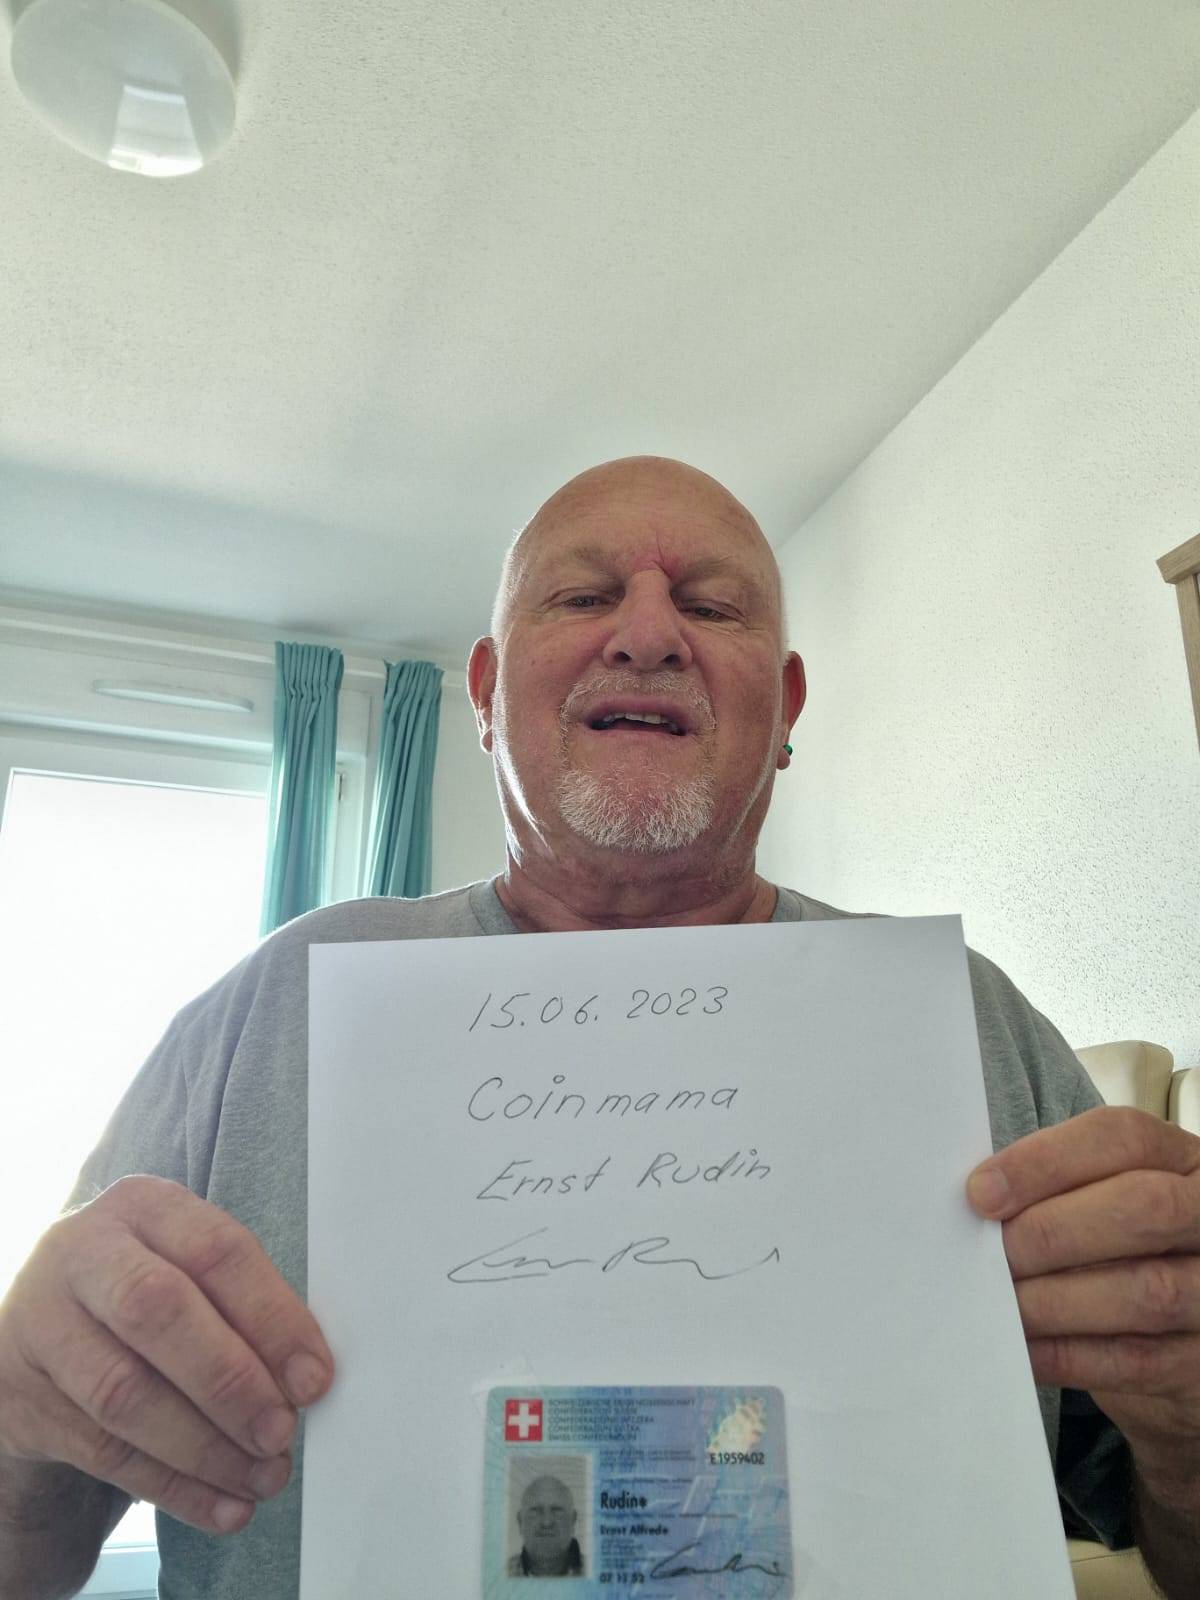 15.06.2023
Coinmama
Ernst Rudin
SCHWEIZERISCHE EIDGENOSSENSCHAFT
CONFÉDÉRATION SUISSE
CONFEDERAZIONE SVIZZERA
CONFEDERAZIUN SVIZRA
SWISS CONFEDERATION
E1959402
Rudin
Ernst Alfred
07 11 52